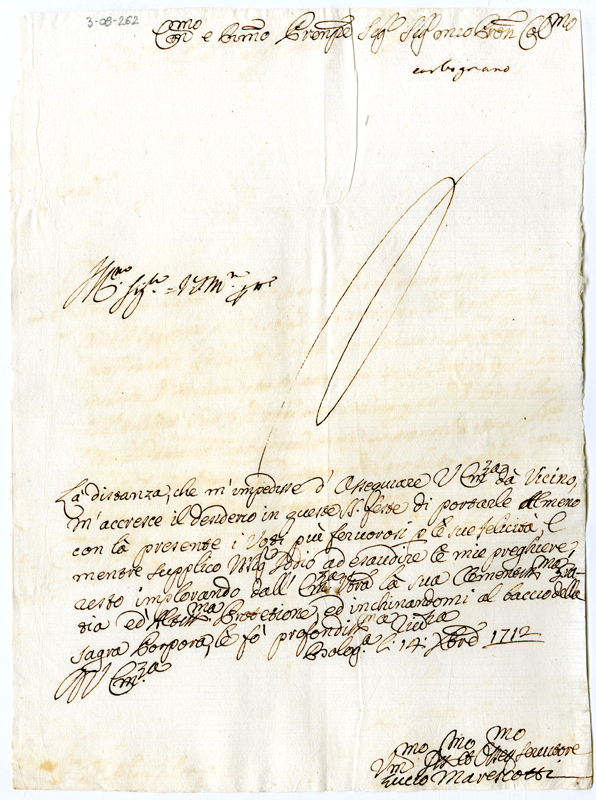 3-08-262
Em.mo e Rmo Prenpe Sig.r Sig.r
carbognano
La distanza, che m'impedisce d'Assequiare V Em.za da Vicino,
m'accresce il desiderio in queste SS. feste di portarle Almeno
con la presente i Voti più fervorosi p le sue felicità, e
mentre supplico Iddio ad esaudire le mie preghiere,
resto implorando dall' Em.za Vra la sua Clementiss.ma Gra
tia ed Protetione, ed inchinandomi al baccio della
sagra Porpora, le fò profondiss.ma
Bolog.a li 14: Xbre 1712
Di V Em.za
Vm.mo Servitore
Marescotti